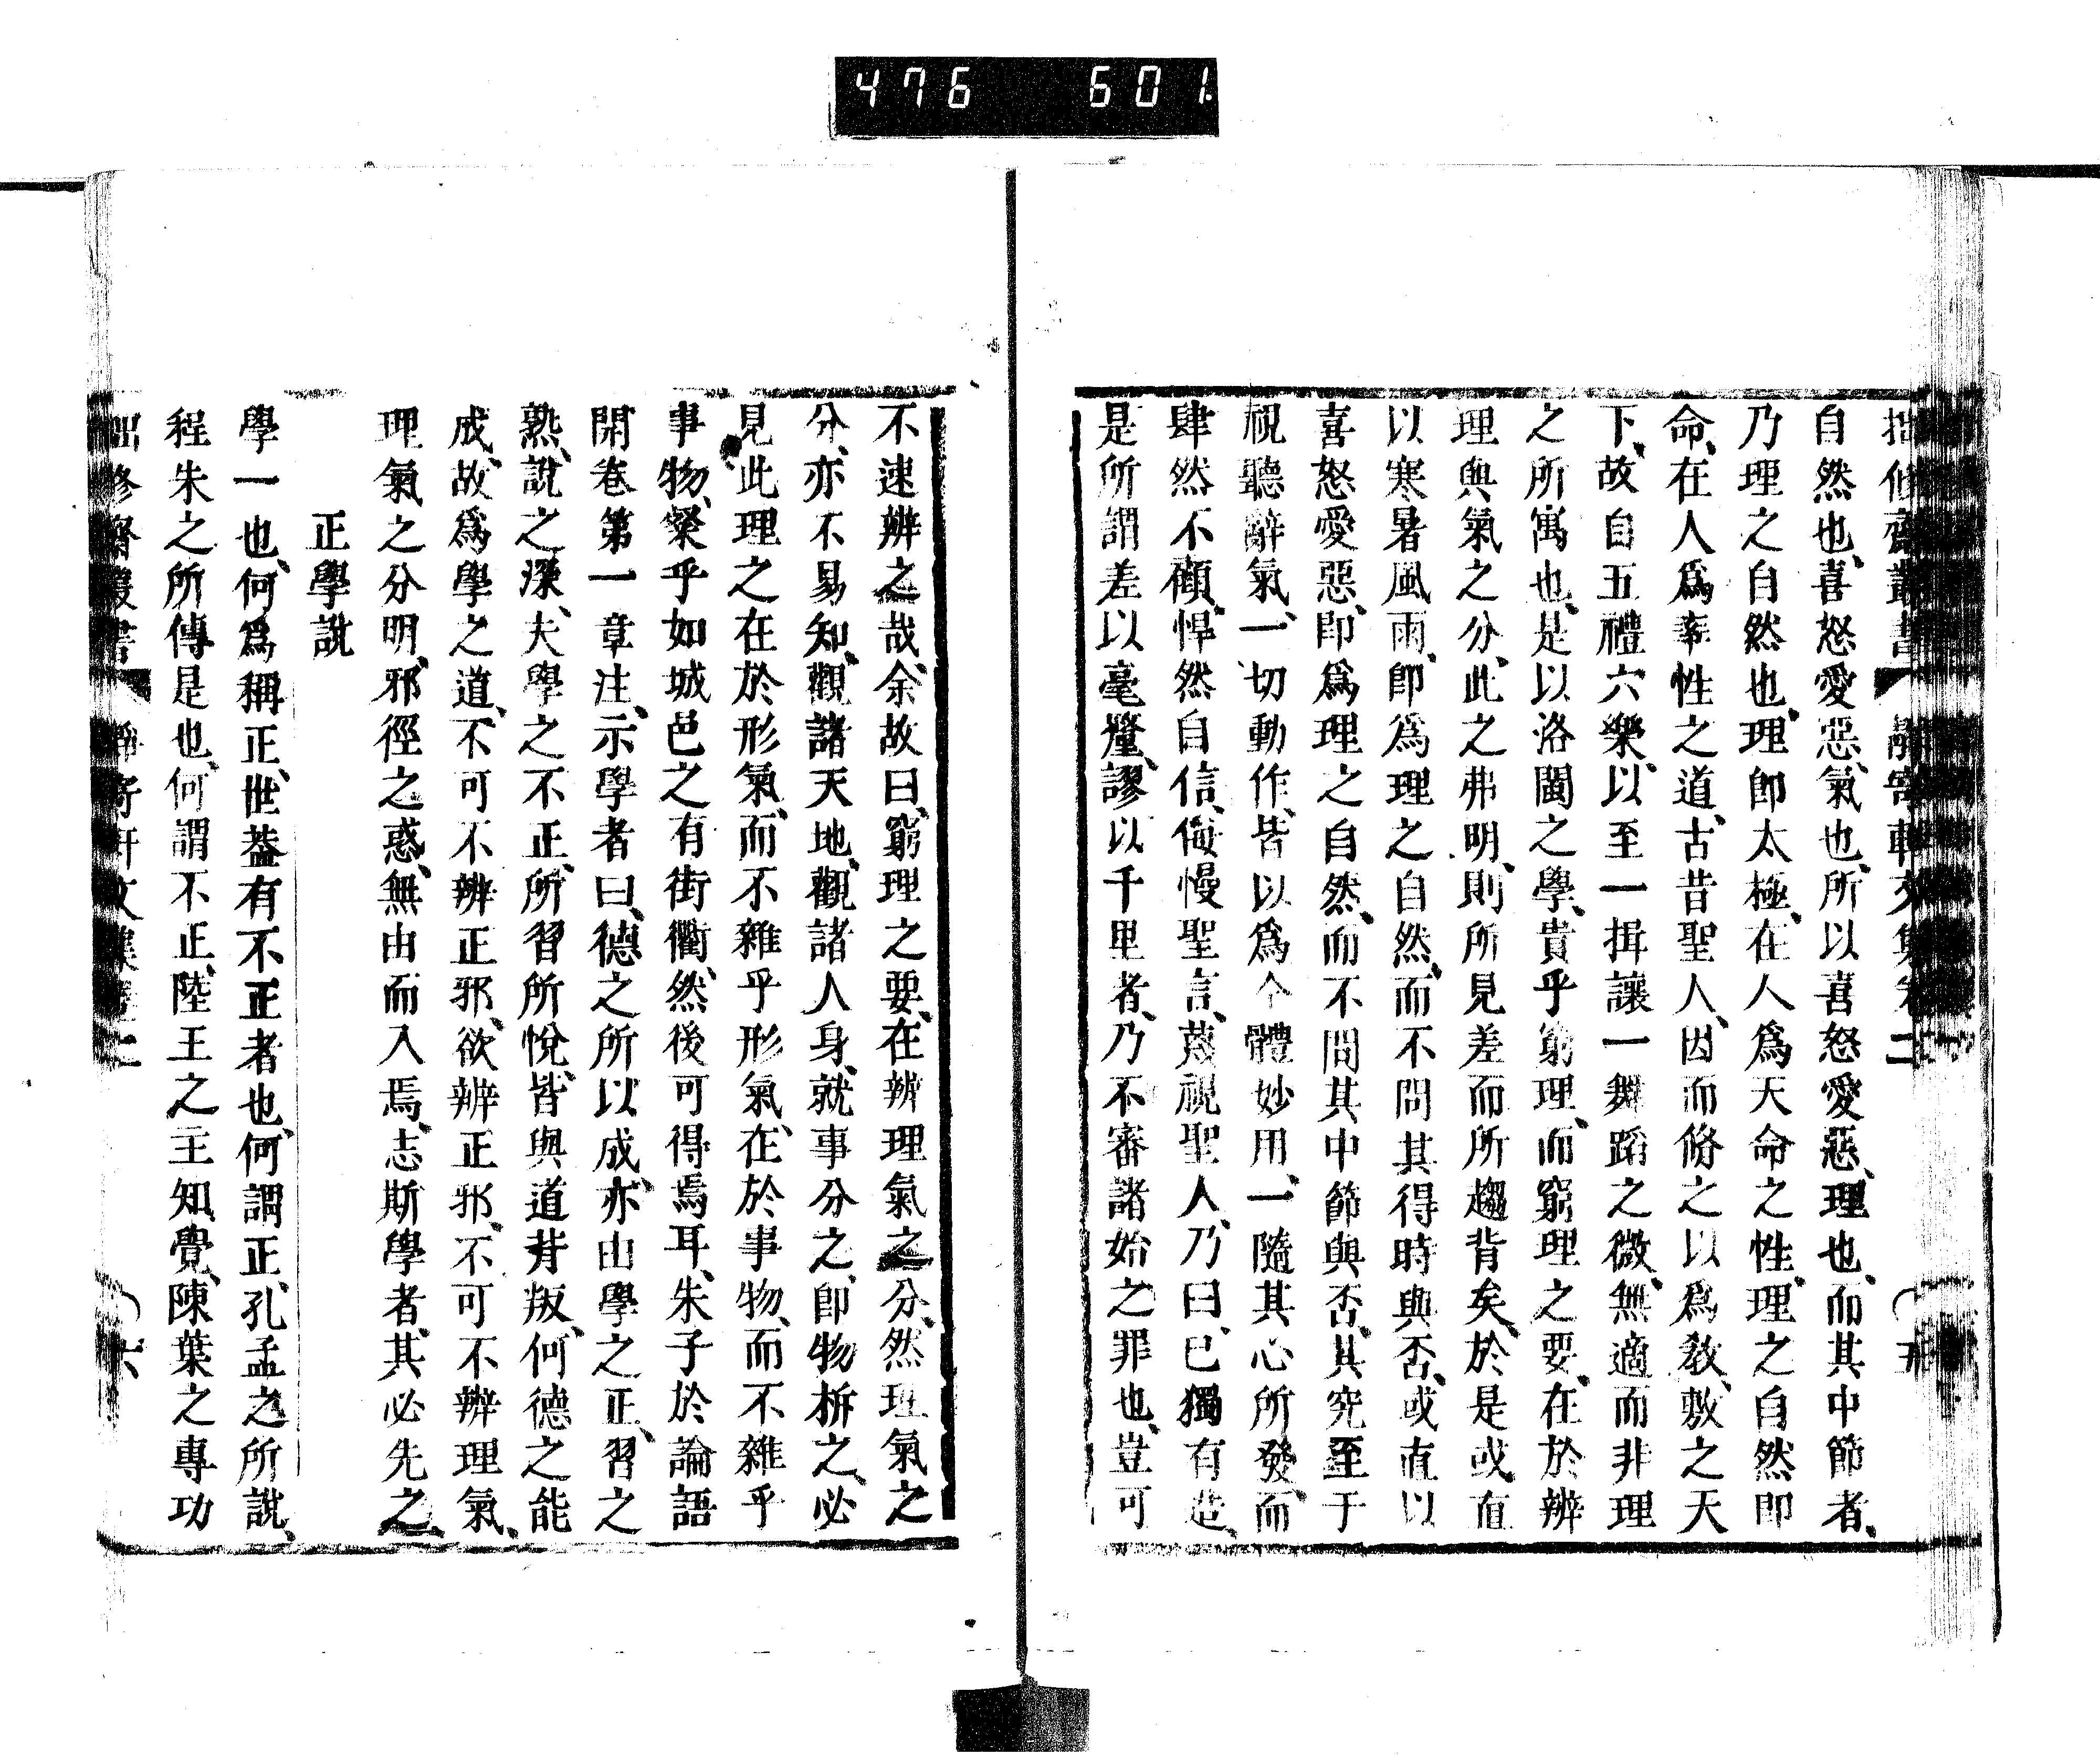 476 601
拙修齋叢書 靜寄軒文集卷二 〇五
自然也、喜怒愛惡、氣也、所以喜怒愛惡、理也、而其中節者、
乃理之自然也、理卽太極、在人爲天命之性、理之自然卽
命、在人爲率性之道、古昔聖人、因而脩之以爲敎、敷之天
下、故自五禮六樂、以至一揖讓一舞蹈之微、無適而非理
之所寓也、是以洛閩之學、貴乎窮理、而窮理之要、在於辨
理與氣之分、此之弗明、則所見差而所趨背矣、於是或直
以寒暑風雨、卽爲理之自然、而不問其得時與否、或直以
喜怒愛惡、卽爲理之自然、而不問其中節與否、其究至于
視聽辭氣、一切動作、皆以爲全體妙用、一隨其心所發、而
肆然不顧、悍然自信、侮慢聖言、蔑視聖人、乃曰、已獨有造、
是所謂差以毫釐、謬以千里者、乃不審諸始之罪也、豈可
不速辨之哉、余故曰、窮理之要、在辨理氣之分、然理氣之
分、亦不易知、觀諸天地、觀諸人身、就事分之、卽物析之、必
見此理之在於形氣、而不雜乎形氣、在於事物、而不雜乎
事物、粲乎如城邑之有街衢、然後可得焉耳、朱子於論語
開卷第一章注、示學者曰、德之所以成、亦由學之正、習之
熟、說之深、夫學之不正、所習所悅、皆與道背叛、何德之能
成、故爲學之道、不可不辨正邪、欲辨正邪、不可不辨理氣、
理氣之分明、邪徑之惑、無由而入焉、志斯學者、其必先之、
正學說
學一也、何爲稱正、世葢有不正者也、何謂正、孔孟之所說、
程朱之所傳是也、何謂不正、陸王之主知覺、陳葉之專功
拙修齋叢書 靜寄軒文集卷二 〇六